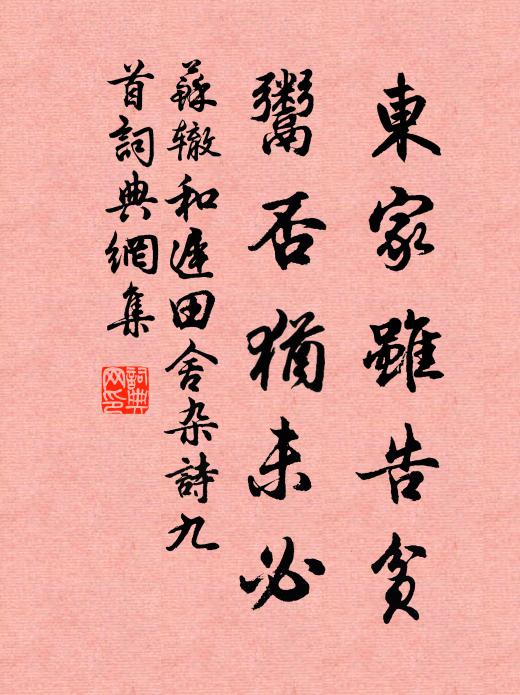 東家雖告貧
鬻否猶未必
蘇轍和遲田舍杂詩九
首詞典網集
詞典
网印